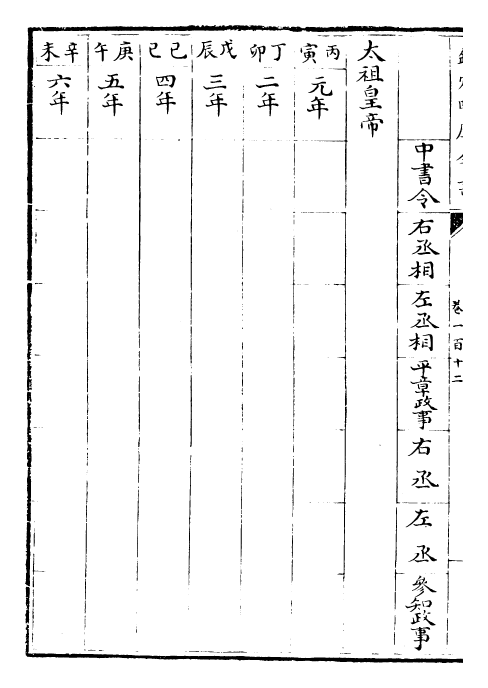 欽定四庫全書
卷一百十二
中書令
右丞相
左丞相
平章政事
右丞
左丞
參知政事
太祖皇帝
丙寅
元年
丁卯
二年
戊辰
三年
己巳
四年
庚午
五年
辛未
六年